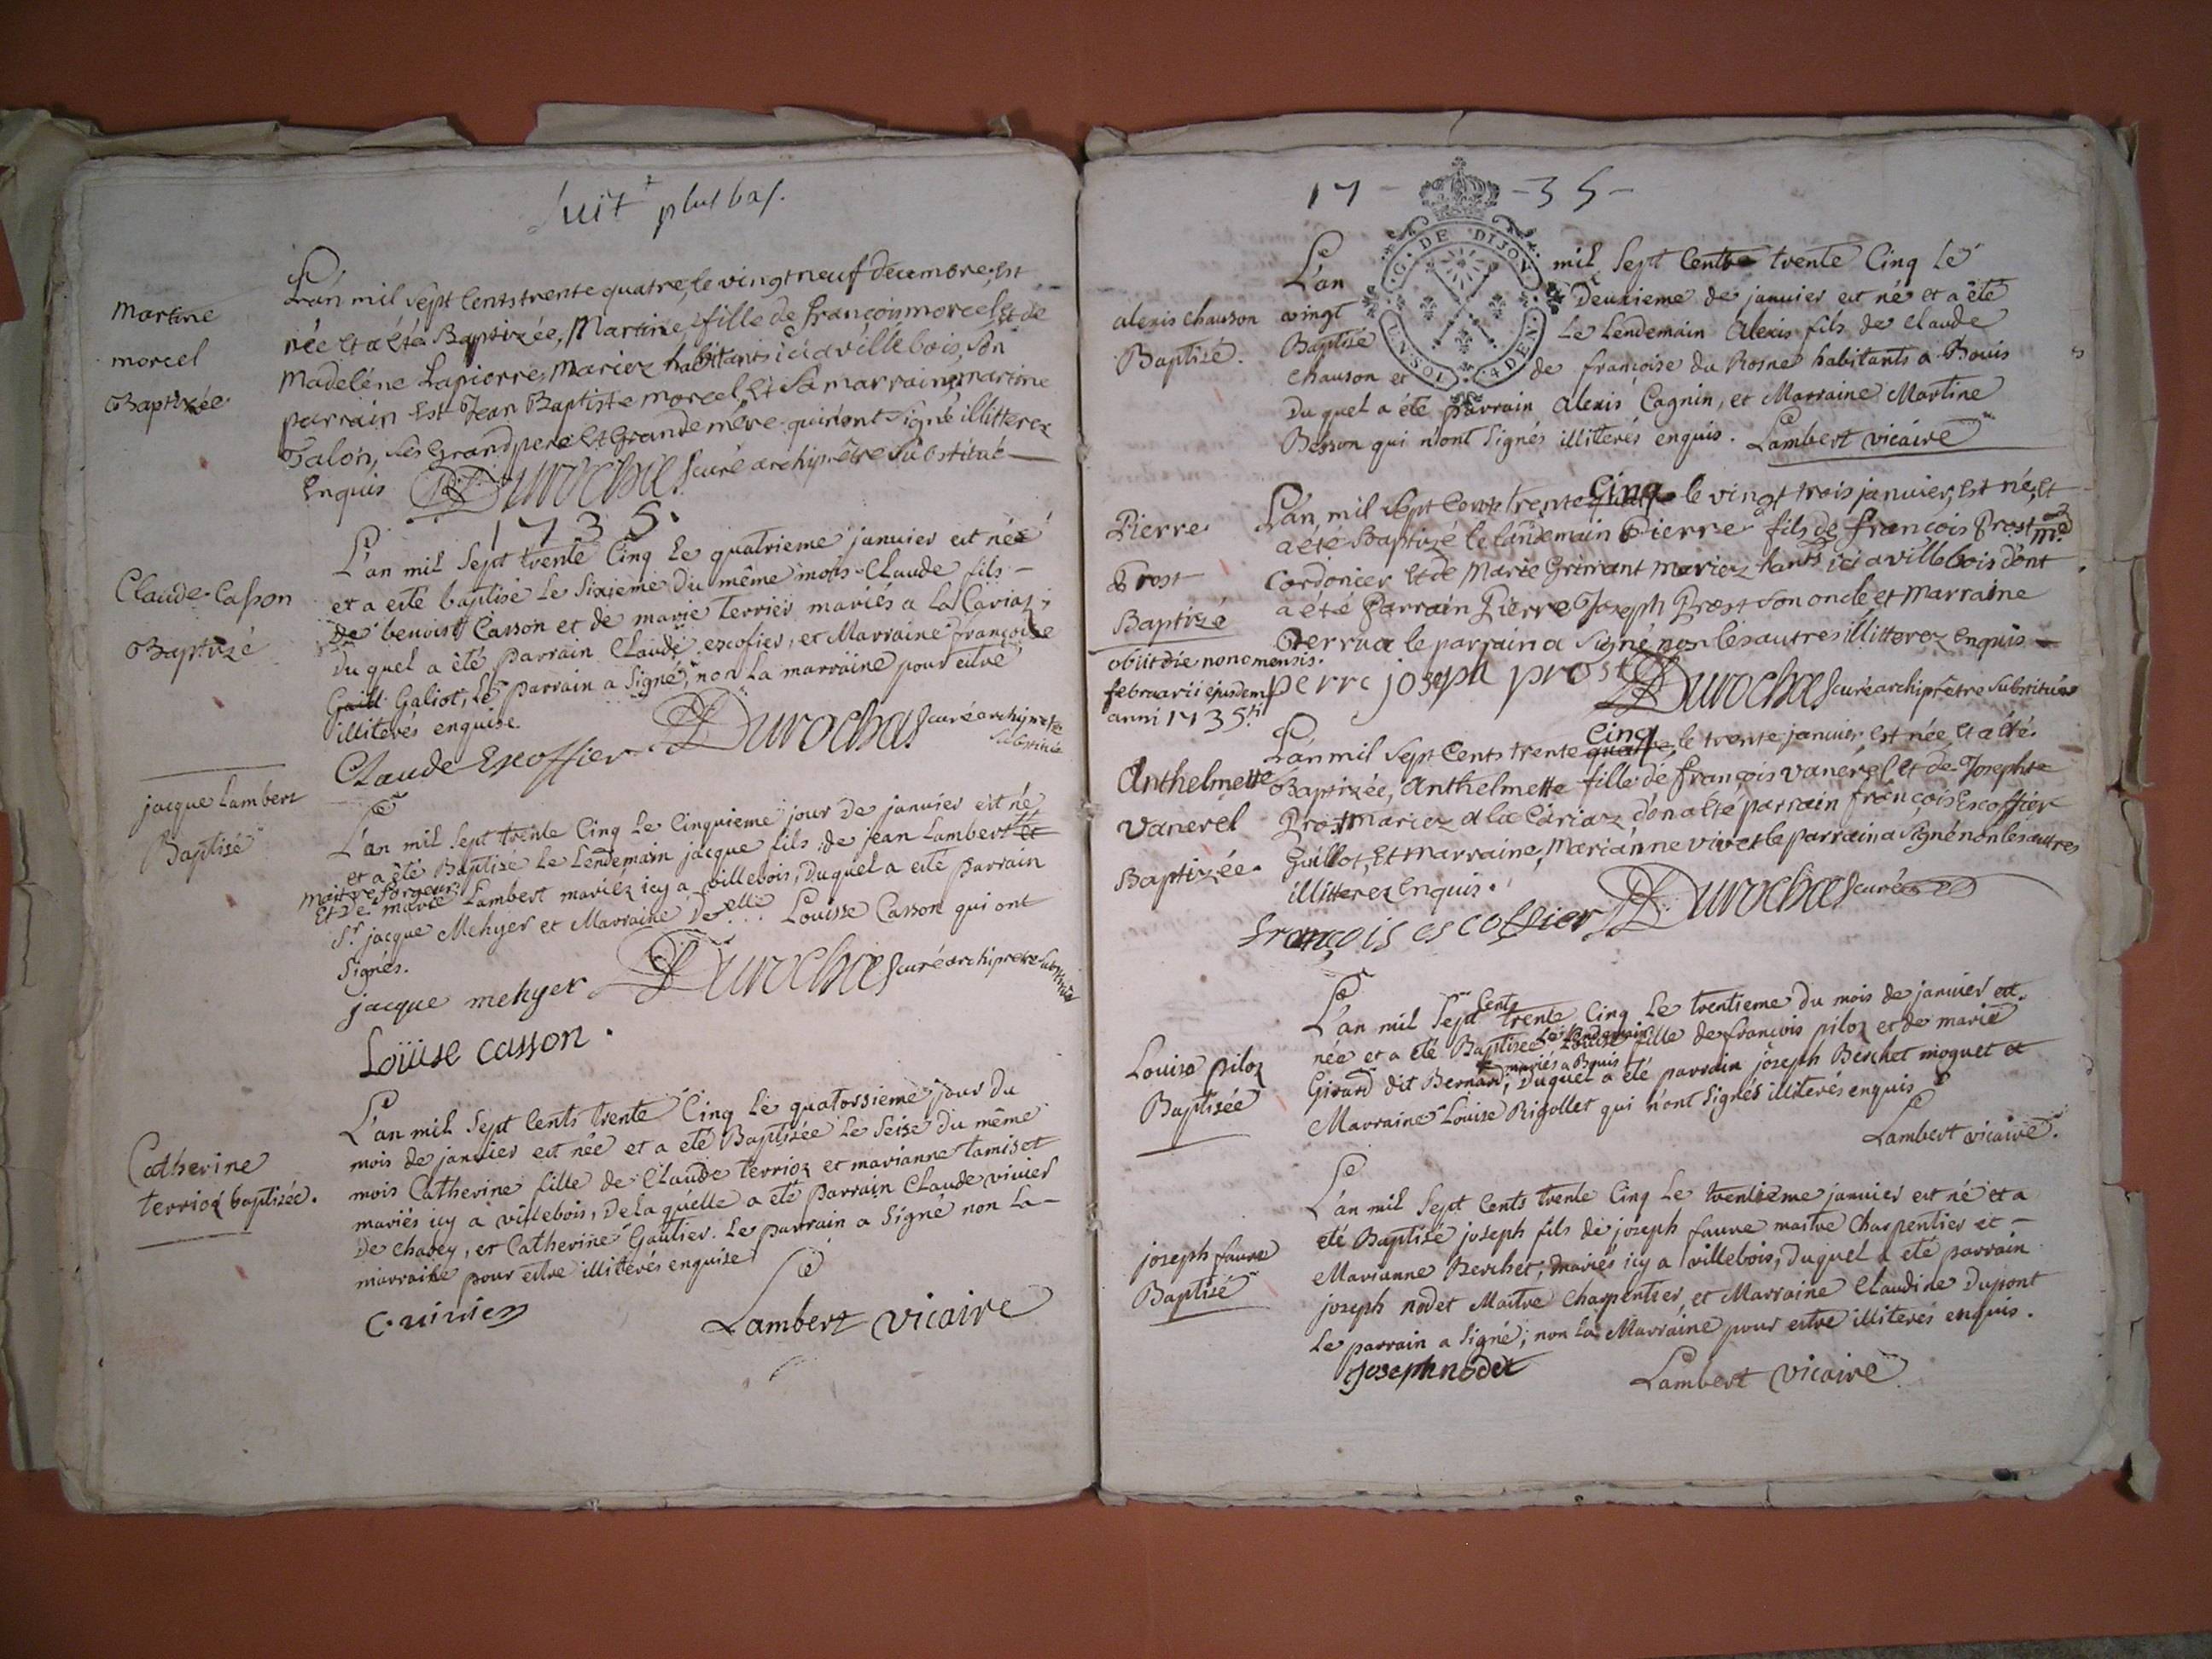 Suit plus bas.
Martine
morcel
Baptizée
L'an mil sept Cents trente quatre, le vingt neuf decembre, Est
née Et a été Baptizée, Martine fille de françois morcel Et de
Madeléne Lapierre, Mariez habitants ici a villebois, Son
parrain Est Jean Baptiste morcel, Et Sa marraine, martine
Talon, Ses Grandpere Et Grande mére qui n'ont Signé illitterez
Enquis Durochas curé archiprêtre Substitué
1735.
Claude Casson
Baptizé
L'an mil Sept trente Cinq Le quatrieme janvier est née
et a esté baptisé Le Sixieme Du même mois Claude fils
De benoist Casson et de marie terrier mariés a La Cariaz,
Du quel a êté parrain Claude escofier, et Marraine françoise
Galiot, Le parrain a Signé, non La marraine pour estre
illiterés enquise
Claude Escoffier Durochas curé archiprêtre
Substitué
jacque Lambert
Baptisé
L'an mil Sept trente Cinq Le Cinquieme jour De janvier est né
et a êté Baptisé Le Lendemain jacque fils de jean Lambert et
maitre forgeur
Et De marie Lambert mariéz icy a villebois, Duquel a esté parrain
Sr. jacque Mehyer et Marraine Delle Louisse Casson qui ont
Signés.
jacque mehyer Durochas curé archiprêtre Substitué
Loüise casson.
Catherine
terrioz baptisée.
L'an mil Sept Cents trente Cinq Le quatorsieme jour du
mois de janvier est née et a eté Baptisée Le Seise Du même
mois Catherine fille de Claude terrioz et marianne tamiset
mariés icy a villebois, De la quélle a eté parrain Claude vivier
De chavey, et Catherine Gautier. Le parrain a Signé non La
marraine pour estre illiterés enquise
C. vivier
Lambert vicaire
17 - 35 -
G. DE DIJON
UN SOL 4 DEN
alexis chauson
Baptisé.
L'an mil Sept Cents trente Cinq Le
vingt Deuxieme de janvier est né et a êté
Baptisé Le Lendemain Alexis fils de Claude
Chauson et de françoise du Rosne habitants a Bouis
Du quel a été parrain Alexis Cagnin, et Marraine Martine
Besson qui n'ont Signés illiterés enquis. Lambert vicaire
Pierre
Prost
Baptizé
obiit die nono mensis
februarii ejusdem
anni 1735ti
L'an, mil Sept Cents trente Cinq le vingt trois janvier, Est né, Et
a été Baptizé le landemain Pierre fils de françois Prost me
Cordonier Et de Marie Grimant mariez hants ici a villebois dont
a été Parrain Pierre Joseph Prost Son oncle et Marraine
Perrua le parrain a Signé non les autres illitterez Enquis
perre joseph prost Durochas curé archiprêtre Substitué
Anthelmette
Vanerel
Baptizée.
Cinq
L'an mil Sept Cents trente quatre, le trente janvier, Est née, Et a été
Baptizée, Anthelmette fille de françois vanerel Et de Josephte
Prost mariez a la Cariaz don a été parrain françois Escoffier
Guillot, Et Marraine, Mariánne vivet le parrain a Signé non les autres
illitterez Enquis.
françois escoffier Durochas curé
Louise piloz
Baptisée
Cents
L'an mil Sept trente Cinq Le trentieme Du mois de janvier est
Le Lendemain
née et a eté Baptisée Louise fille de françois piloz et de marie
mariés a Bouis
Girard dit Bernard, Duquel a été parrain joseph Berchet moquet et
Marraine Louise Rigollet qui n'ont Signés illiterés enquis
Lambert vicaire.
joseph faure
Baptisé
L'an mil Sept Cents trente Cinq Le trentieme janvier est né et a
eté Baptisé joseph fils de joseph faure maitre Charpentier et
Marianne Berchet, mariés icy a villebois, Duquel a eté parrain
joseph nodet Maitre Charpentier, et Marraine Claudine Dupont
Le parrain a Signé, non La Marraine pour estre illiterés enquis.
Joseph nodet
Lambert vicaire